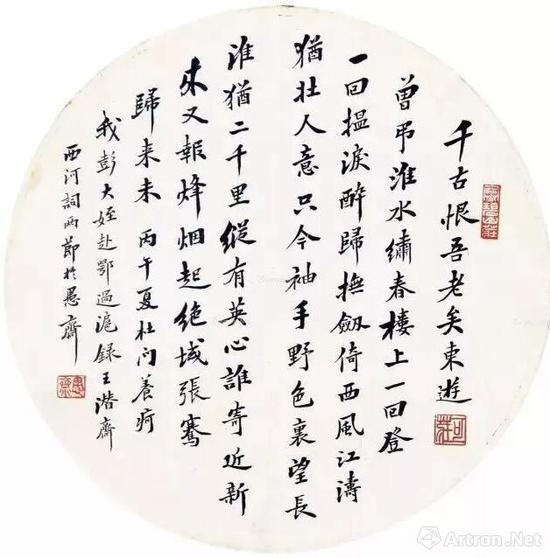 千古恨吾老矣東遊
曾弔淮水繡春樓上一回登
一回搵淚醉歸撫劍倚西風江濤
猶壯人意只今袖手野色裏望長
淮猶二千里縱有英心誰寄近新
來又報烽烟起絶域張騫
歸来未 丙午夏杜门養疴
我彭大姪赴鄂過滬録王潛齋
西河詞兩節於愚齋
愚齋
Artron.Net